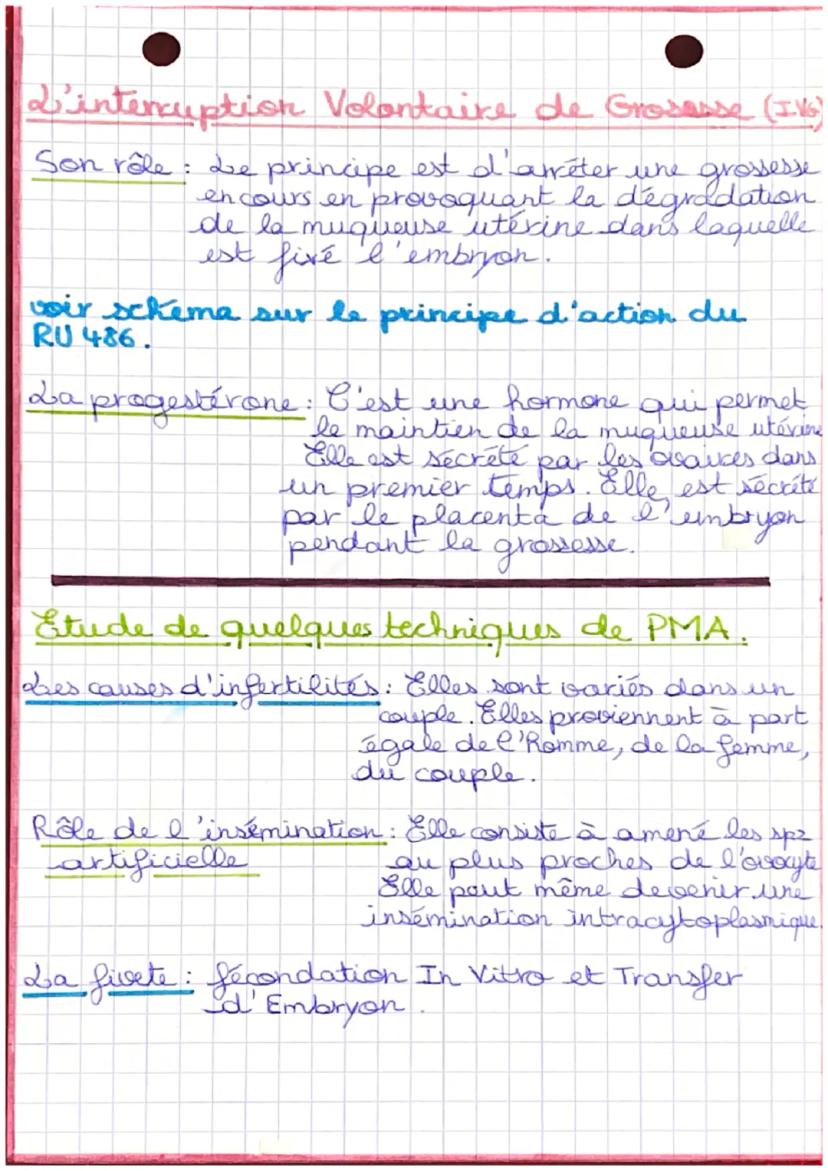 L'interruption Volontaire de Grosesse (IVG)
Son rôle : Le principe est d'arrêter une grossesse
en cours en provoquant la dégradation
de la muqueuse utérine dans laquelle
est fixé l'embryon.
voir schéma sur le principe d'action du
RU 486.
La progestérone : C'est une hormone qui permet
le maintien de la muqueuse utérine
Elle est sécrété par les ovaires dans
un premier temps. Elle est sécrété
par le placenta de l'embryon
pendant la grossesse.
Etude de quelques techniques de PMA.
Les causes d'infertilités : Elles sont variés dans un
couple. Elles proviennent à part
égale de l'Homme, de la femme,
du couple.
Rôle de l'insémination : Elle consiste à amené les spz
artificielle au plus proches de l'ovocyte
Elle peut même devenir une
insémination intracytoplasmique.
La fivete : fécondation In Vitro et Transfer
d'Embryon.